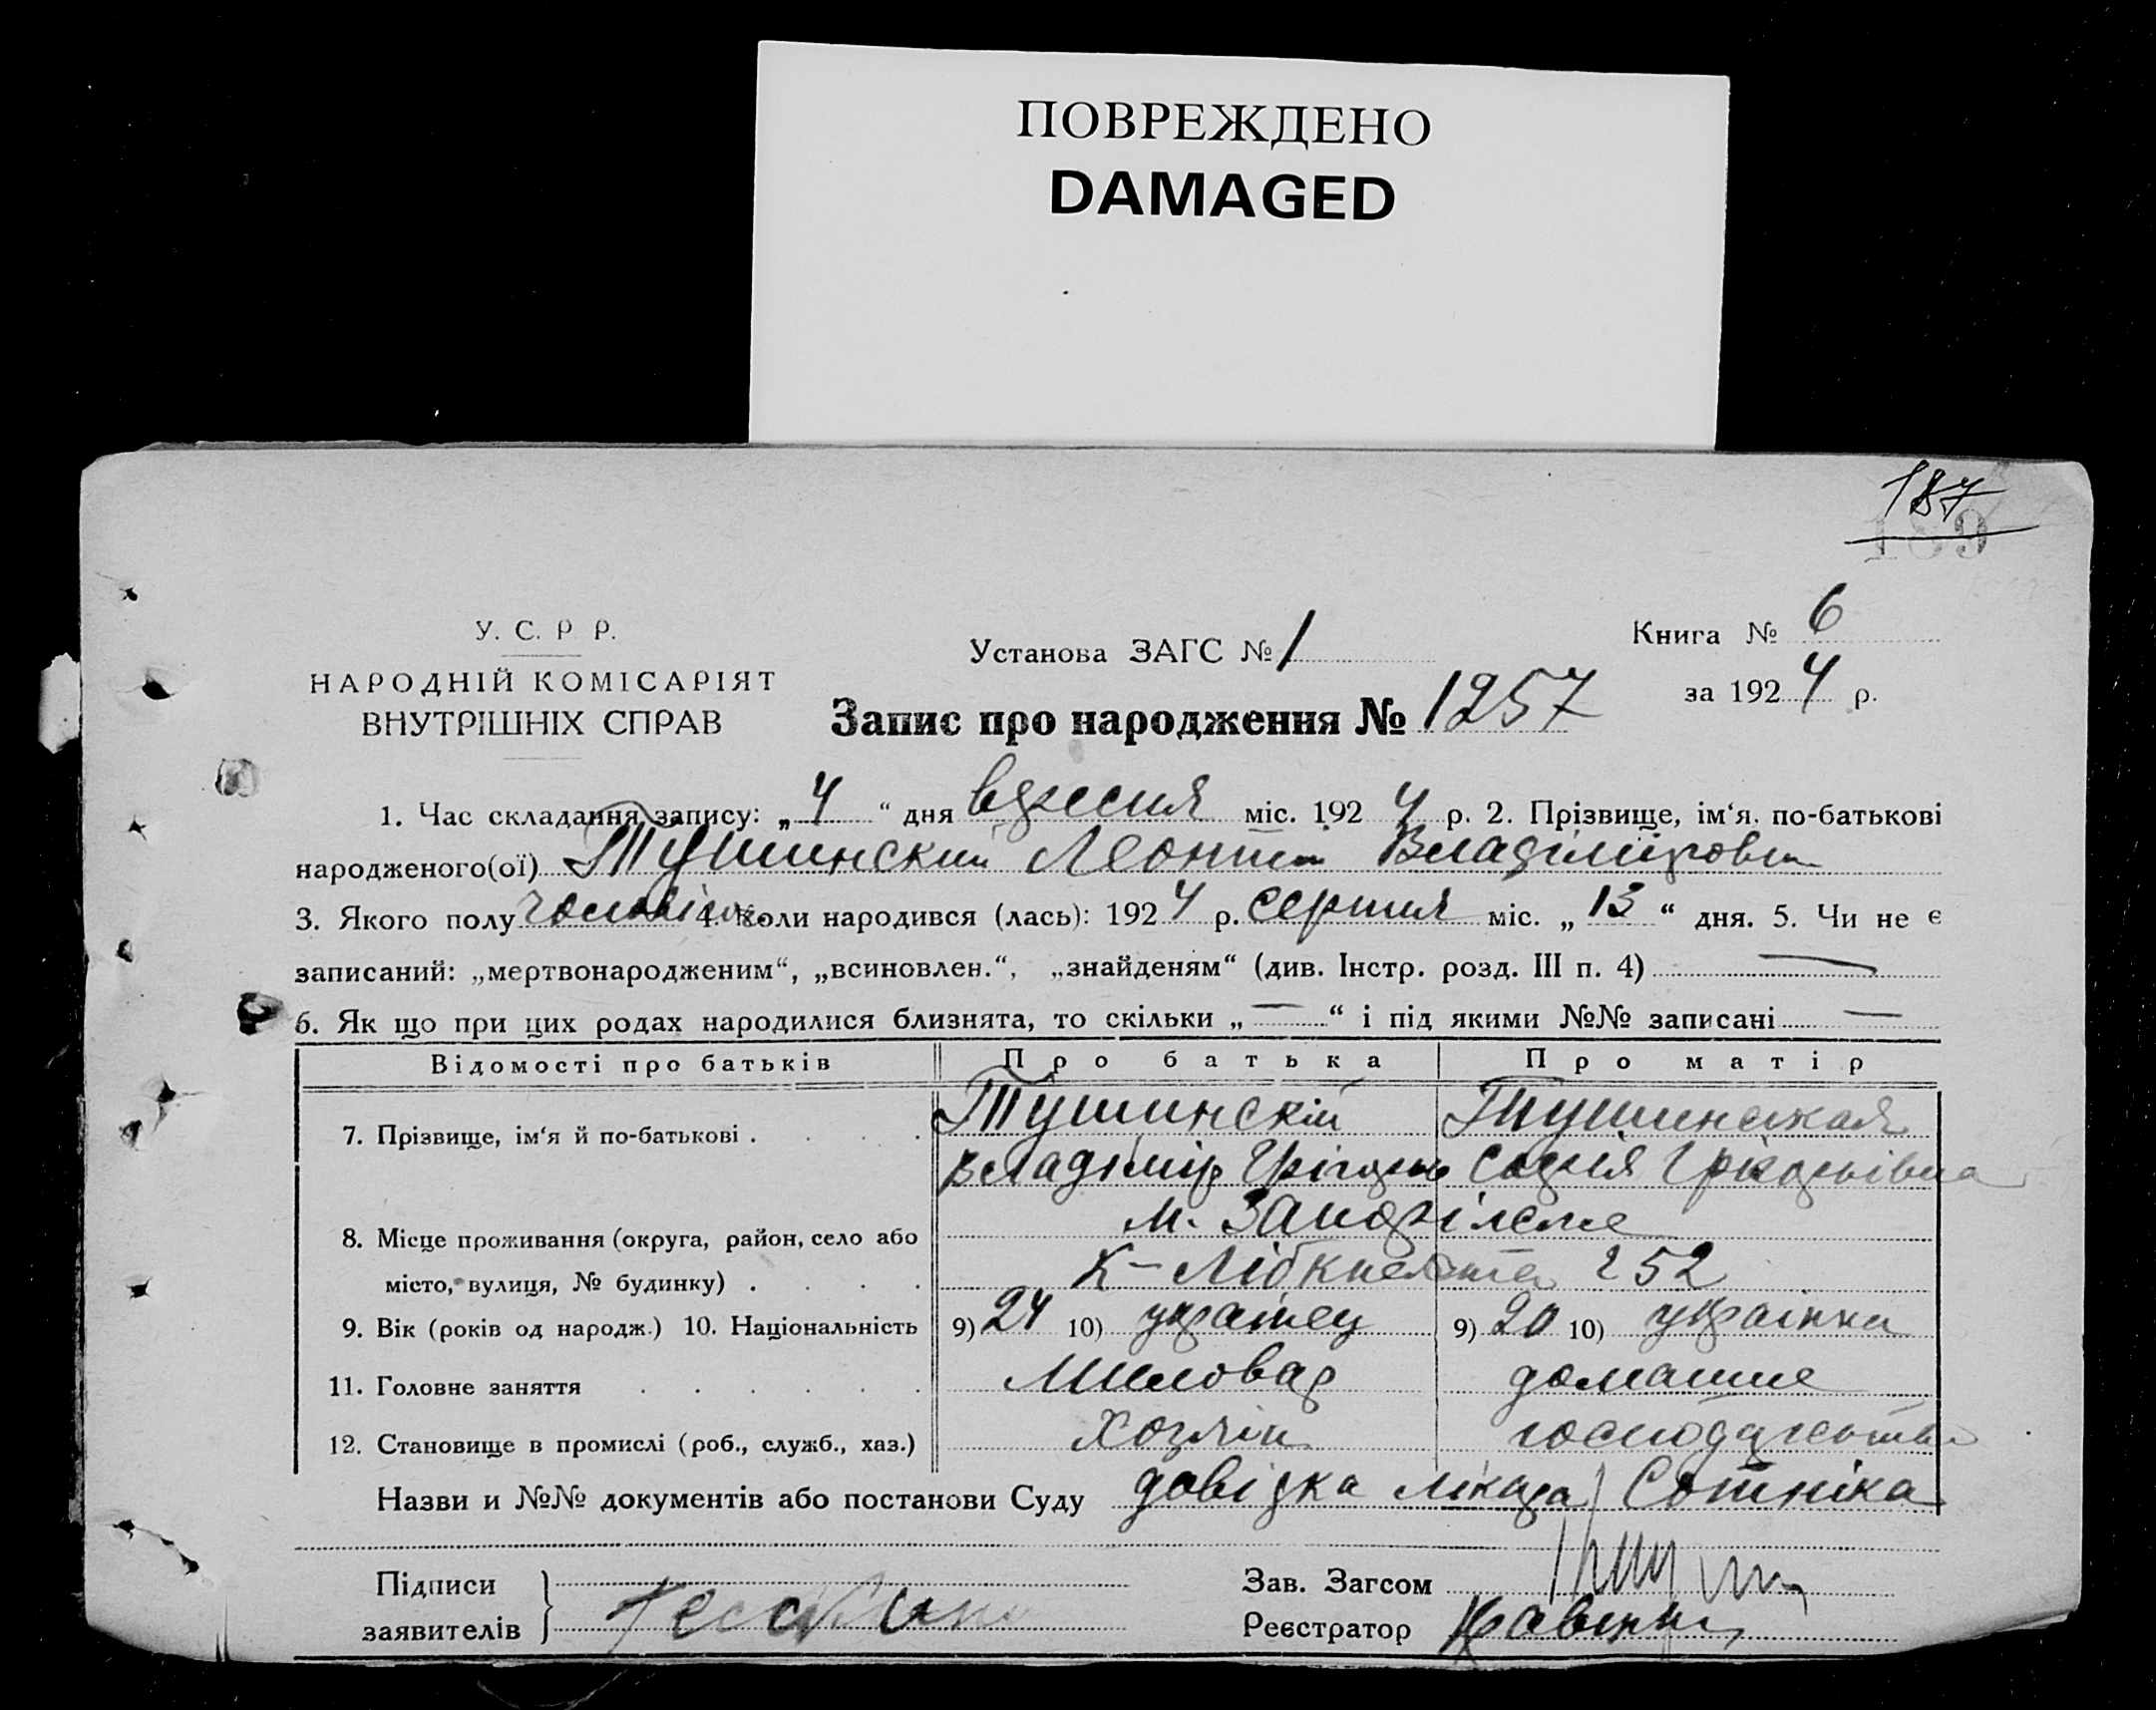 ПОВРЕЖДЕНО
DAMAGED
187
189
У. С. Р Р.
НАРОДНІЙ КОМІСАРІЯТ
ВНУТРІШНІХ СПРАВ
Установа ЗАГС № 1
Книга № 6
за 1924 р.
Запис про народження № 1257
1. Час складання запису: „4“ дня вересня міс. 1924 р. 2. Прізвище, ім‘я, по-батькові
народженого(ої) Тушинский Леонтий Владіміров
3. Якого полу 4. Коли народився (лась): 1924 р. серпня міс. „13“ дня. 5. Чи не є
записаний: „мертвонародженим“, „всиновлен.“, „знайденям“ (див. Інстр. розд. III п. 4) —
6. Як що при цих родах народилися близнята, то скільки „—“ і під якими №№ записані —
Відомості про батьків Про батька Про матір
7. Прізвище, ім‘я й по-батькові . . . . Тушинскій Тушинская
Владімір
8. Місце проживання (округа, район, село або
м. Запоріжже
місто, вулиця, № будинку) . . . . К-Лібкнехта 252
9. Вік (років од народж.) 10. Національність 9) 24 10) украінец 9) 20 10) украінка
11. Головне заняття . . . . . . Миловар домашне
12. Становище в промислі (роб., служб., хаз.) Хозяін господарство
Назви и №№ документів або постанови Суду довідка лікара Сотніка
Підписи
заявителів
Зав. Загсом
Реєстратор